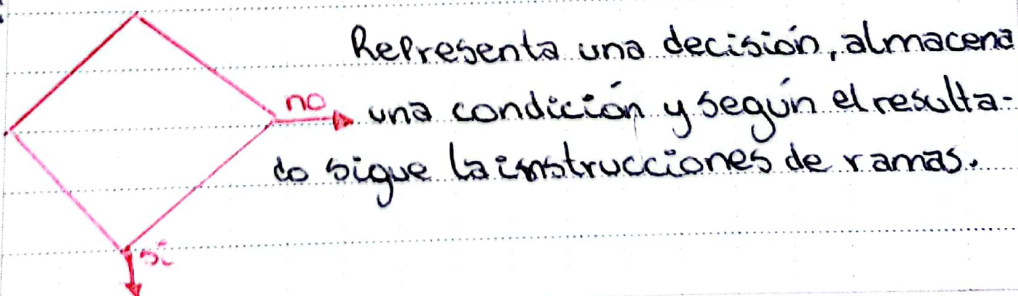 Representa una decisión, almacena
no
una condición y según el resulta-
do sigue la instrucciones de ramas.
si